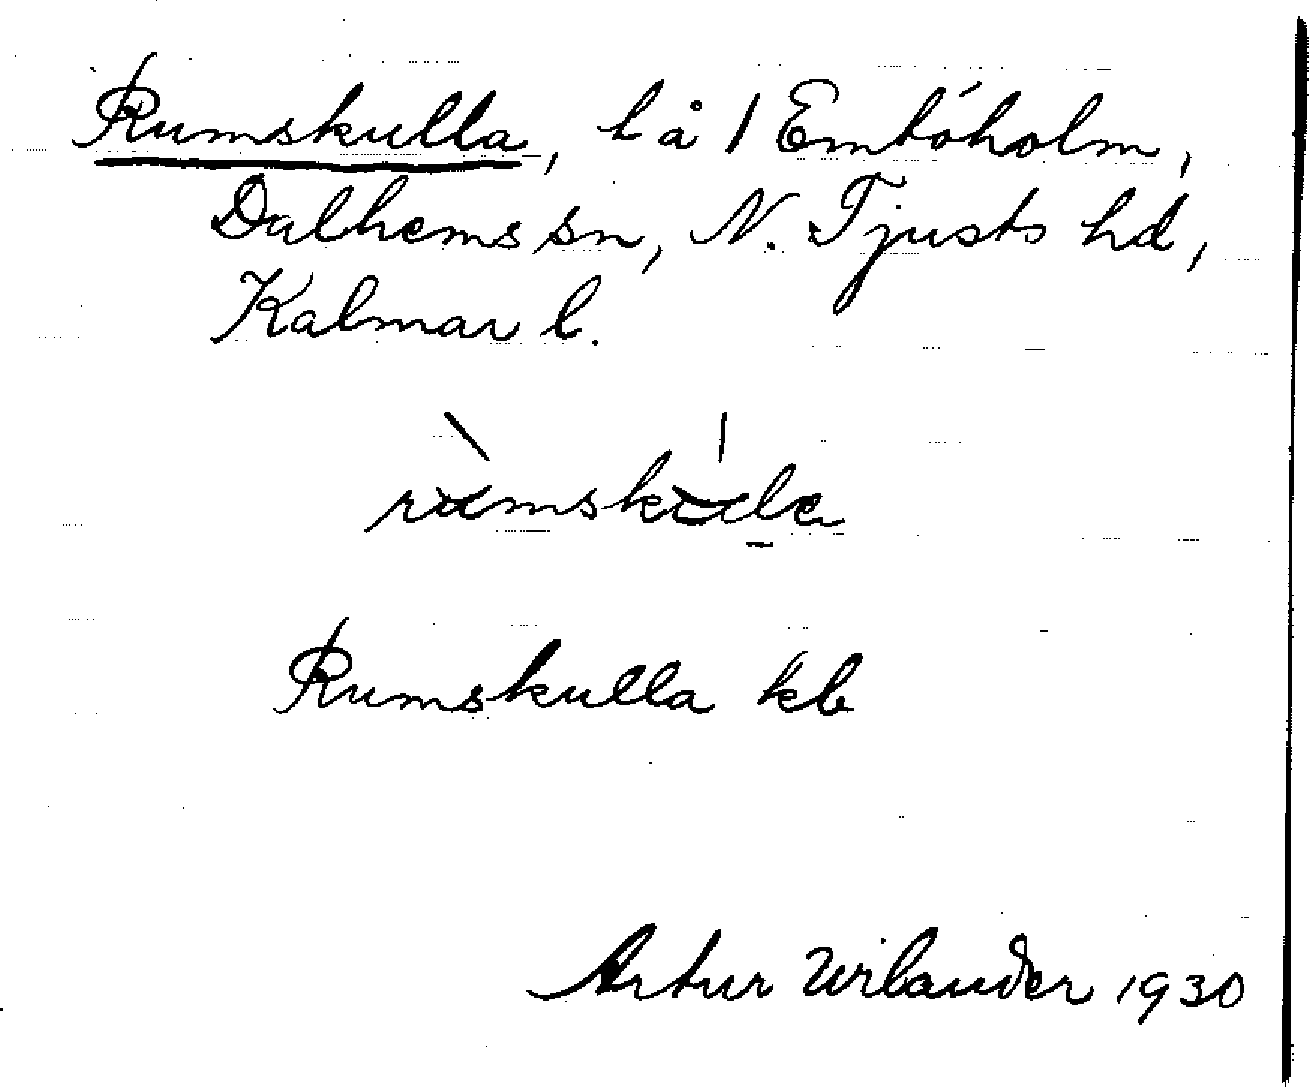 Rumskulla, l å 1 Emtöholm,
Dalhems sn, N. Tjusts hd,
Kalmar l.
Rumskulla kb
Artur Wilander 1930